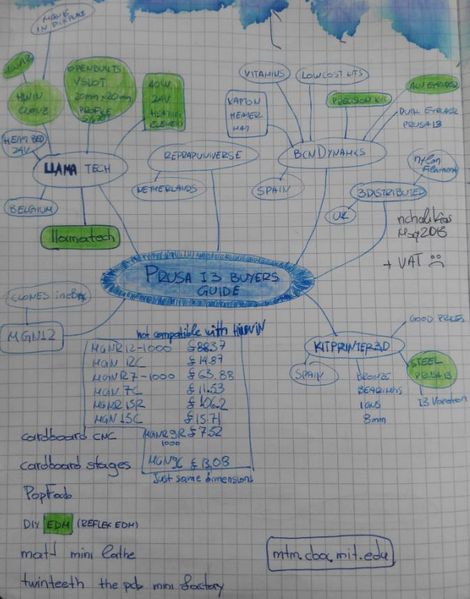 MADE
IN DISPLAY
HIWIN
CLONE
OPENBUILTS
VSLOT
20mm x 20mm
PROFILE
40W
24V
HEATING
ELEMENT
HEAT BED
24V
LLAMA TECH
BELGIUM
llamatech
REPRAPUNIVERSE
NETHERLANDS
VITAMINS
LOWCOST KITS
KAPTON
HEATER
MAT
PRECISION KIT
DUAL EXTRUDER
PRUSA I3
BCNDYNAMICS
SPAIN
nylon
filament
3DISTRIBUTED
UK
May 2015
+ VAT ☹
PRUSA I3 BUYERS
GUIDE
CLONES
MGN12
not compatible with HIWIN
MGNR12-1000 £88.37
MGN 12C £14.87
MGNR7-1000 £63.88
MGN 7C £11.53
MGNR15R £106.2
MGN 15C £15.71
MGNR9R £7.52
1000
MGN9C £13,08
Just same dimensions
GOOD PRICES
KITPRINTER3D
SPAIN
BRONZE
BEARINGS
8mm
STEEL
PRUSA I3
I3 Variation
cardboard CNC
cardboard stages
PopFab
DIY EDM (REFLEX EDM)
matt mini lathe
twinteeth the pcb mini factory
mtm.cba.mit.edu